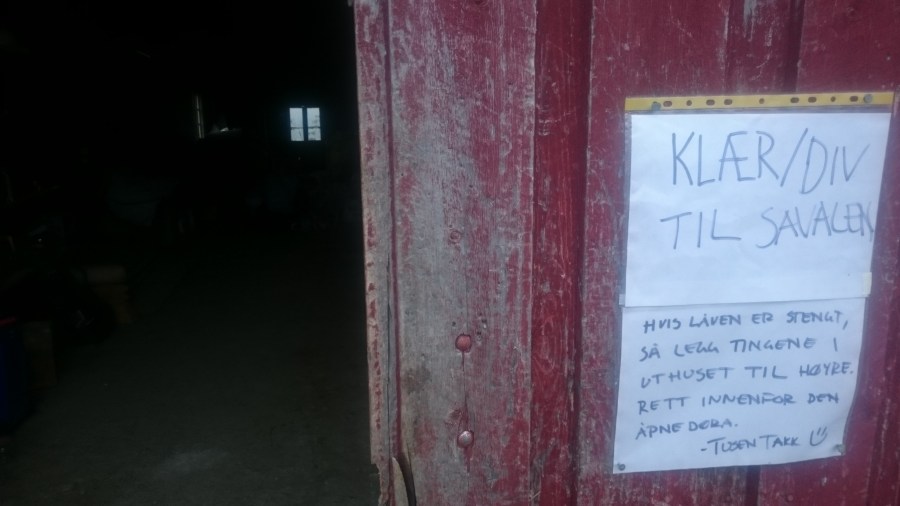 KLÆR/DIV
TIL SAVALEN
HVIS LÅVEN ER STENGT,
SÅ LEGG TINGENE I
UTHUSET TIL HØYRE.
RETT INNENFOR DEN
ÅPNE DØRA.
-TUSEN TAKK